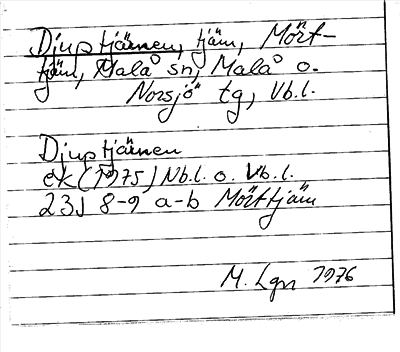 Djuptjärnen, tjärn, Mört-
tjärn, Malå sn, Malå o.
Norsjö tg, Vb.l.
Djuptjärnen
ek (1975) Nb.l. o. Vb.l.
23J 8-9 a-b Mörttjärn
M. Lgn 1976